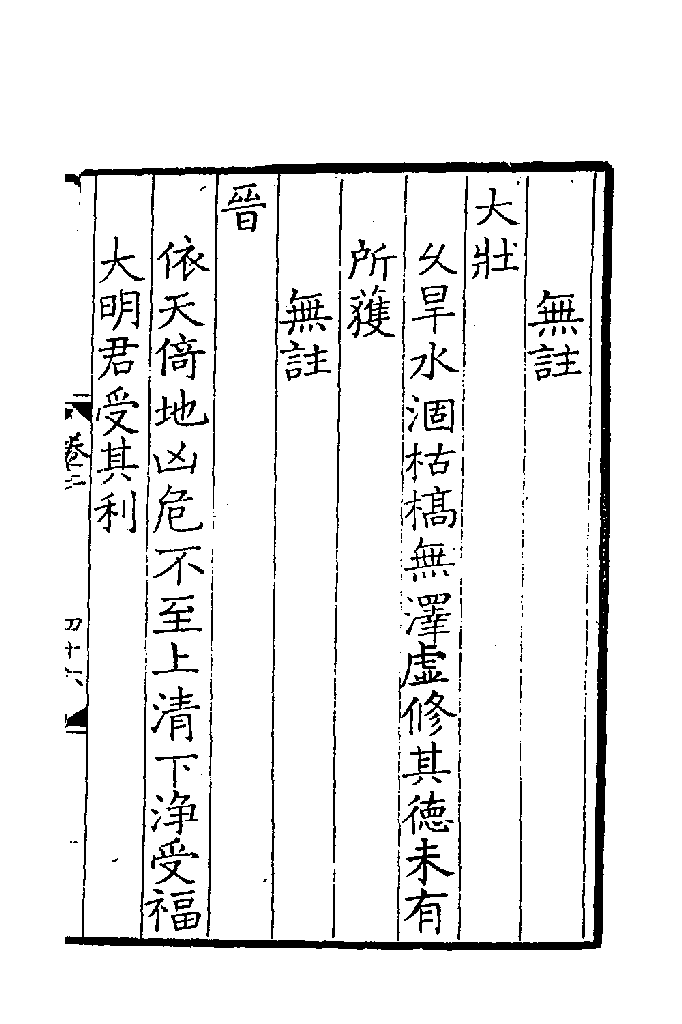 無註
大壯
久旱水涸枯槁無澤虛修其德未有
所獲
無註
晉
依天倚地凶危不至上清下淨受福
大明君受其利
卷二
四十六